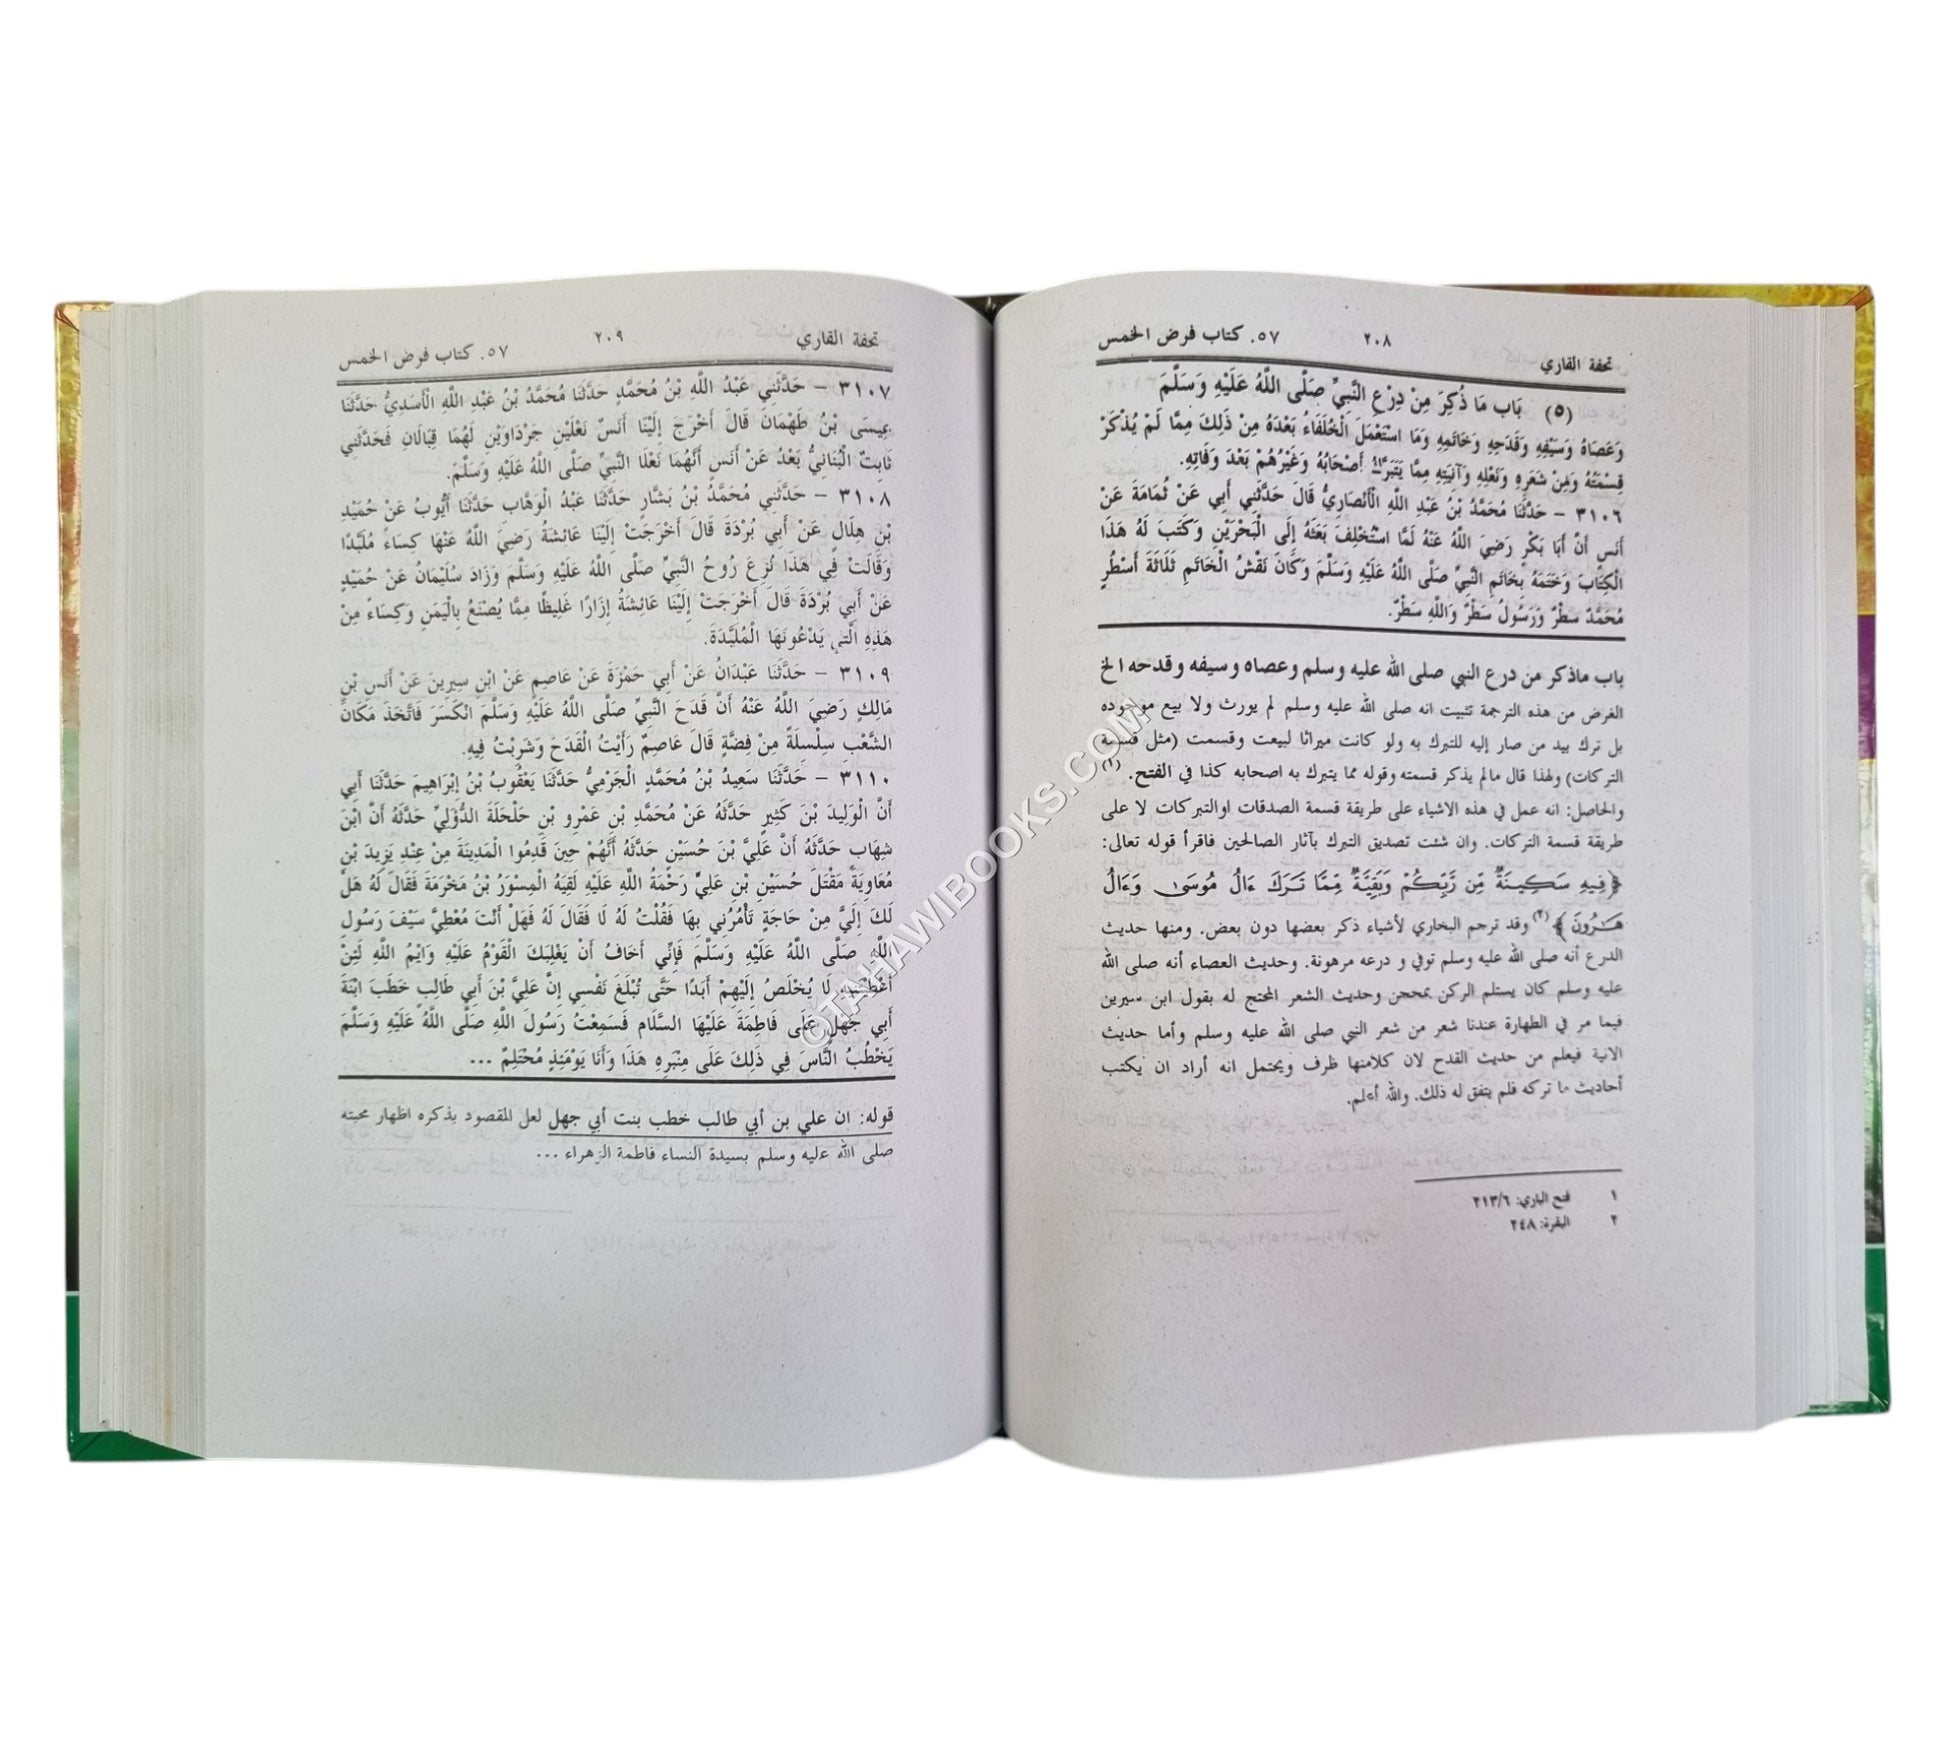 تحفة القاري ٢٠٨ ٥٧. كتاب فرض الخمس
(٥) بَاب مَا ذُكِرَ مِنْ دِرْعِ النَّبِيِّ صَلَّى اللَّهُ عَلَيْهِ وَسَلَّمَ
وَعَصَاهُ وَسَيْفِهِ وَقَدَحِهِ وَخَاتَمِهِ وَمَا اسْتَعْمَلَ الْخُلَفَاءُ بَعْدَهُ مِنْ ذَلِكَ مِمَّا لَمْ يُذْكَرْ
قِسْمَتُهُ وَمِنْ شَعَرِهِ وَنَعْلِهِ وَآنِيَتِهِ مِمَّا يَتَبَرَّكُ أَصْحَابُهُ وَغَيْرُهُمْ بَعْدَ وَفَاتِهِ.
٣١٠٦ – حَدَّثَنَا مُحَمَّدُ بْنُ عَبْدِ اللَّهِ الْأَنْصَارِيُّ قَالَ حَدَّثَنِي أَبِي عَنْ ثُمَامَةَ عَنْ
أَنَسٍ أَنَّ أَبَا بَكْرٍ رَضِيَ اللَّهُ عَنْهُ لَمَّا اسْتُخْلِفَ بَعَثَهُ إِلَى الْبَحْرَيْنِ وَكَتَبَ لَهُ هَذَا
الْكِتَابَ وَخَتَمَهُ بِخَاتَمِ النَّبِيِّ صَلَّى اللَّهُ عَلَيْهِ وَسَلَّمَ وَكَانَ نَقْشُ الْخَاتَمِ ثَلَاثَةَ أَسْطُرٍ
مُحَمَّدٌ سَطْرٌ وَرَسُولُ سَطْرٌ وَاللَّهِ سَطْرٌ.
باب ماذكر من درع النبي صلى الله عليه وسلم وعصاه وسيفه وقدحه الخ
الغرض من هذه الترجمة تثبيت انه صلى الله عليه وسلم لم يورث ولا بيع موجوده
بل ترك بيد من صار إليه للتبرك به ولو كانت ميراثا لبيعت وقسمت (مثل قسمة
التركات) ولهذا قال مالم يذكر قسمته وقوله مما يتبرك به اصحابه كذا في الفتح.(١)
والحاصل: انه عمل في هذه الاشياء على طريقة قسمة الصدقات اوالتبركات لا على
طريقة قسمة التركات. وان شئت تصديق التبرك بآثار الصالحين فاقرأ قوله تعالى:
﴿فِيهِ سَكِينَةٌ مِّن رَّبِّكُمْ وَبَقِيَّةٌ مِّمَّا تَرَكَ ءَالُ مُوسَىٰ وَءَالُ
هَـٰرُونَ﴾(٢) وقد ترجم البخاري لأشياء ذكر بعضها دون بعض. ومنها حديث
الدرع أنه صلى الله عليه وسلم توفي و درعه مرهونة. وحديث العصاء أنه صلى الله
عليه وسلم كان يستلم الركن بمحجن وحديث الشعر المحتج له بقول ابن سيرين
فيما مر في الطهارة عندنا شعر من شعر النبي صلى الله عليه وسلم وأما حديث
الانية فيعلم من حديث القدح لان كلامنها ظرف ويحتمل انه أراد ان يكتب
أحاديث ما تركه فلم يتفق له ذلك. والله أعلم.
١ فتح الباري: ٢١٣/٦
٢ البقرة: ٢٤٨
تحفة القاري ٢٠٩ ٥٧. كتاب فرض الخمس
٣١٠٧ – حَدَّثَنِي عَبْدُ اللَّهِ بْنُ مُحَمَّدٍ حَدَّثَنَا مُحَمَّدُ بْنُ عَبْدِ اللَّهِ الْأَسَدِيُّ حَدَّثَنَا
عِيسَى بْنُ طَهْمَانَ قَالَ أَخْرَجَ إِلَيْنَا أَنَسٌ نَعْلَيْنِ جَرْدَاوَيْنِ لَهُمَا قِبَالَانِ فَحَدَّثَنِي
ثَابِتٌ الْبُنَانِيُّ بَعْدُ عَنْ أَنَسٍ أَنَّهُمَا نَعْلَا النَّبِيِّ صَلَّى اللَّهُ عَلَيْهِ وَسَلَّمَ.
٣١٠٨ – حَدَّثَنِي مُحَمَّدُ بْنُ بَشَّارٍ حَدَّثَنَا عَبْدُ الْوَهَّابِ حَدَّثَنَا أَيُّوبُ عَنْ حُمَيْدِ
بْنِ هِلَالٍ عَنْ أَبِي بُرْدَةَ قَالَ أَخْرَجَتْ إِلَيْنَا عَائِشَةُ رَضِيَ اللَّهُ عَنْهَا كِسَاءً مُلَبَّدًا
وَقَالَتْ فِي هَذَا نُزِعَ رُوحُ النَّبِيِّ صَلَّى اللَّهُ عَلَيْهِ وَسَلَّمَ وَزَادَ سُلَيْمَانُ عَنْ حُمَيْدٍ
عَنْ أَبِي بُرْدَةَ قَالَ أَخْرَجَتْ إِلَيْنَا عَائِشَةُ إِزَارًا غَلِيظًا مِمَّا يُصْنَعُ بِالْيَمَنِ وَكِسَاءً مِنْ
هَذِهِ الَّتِي يَدْعُونَهَا الْمُلَبَّدَةَ.
٣١٠٩ – حَدَّثَنَا عَبْدَانُ عَنْ أَبِي حَمْزَةَ عَنْ عَاصِمٍ عَنْ ابْنِ سِيرِينَ عَنْ أَنَسِ بْنِ
مَالِكٍ رَضِيَ اللَّهُ عَنْهُ أَنَّ قَدَحَ النَّبِيِّ صَلَّى اللَّهُ عَلَيْهِ وَسَلَّمَ انْكَسَرَ فَاتَّخَذَ مَكَانَ
الشَّعْبِ سِلْسِلَةً مِنْ فِضَّةٍ قَالَ عَاصِمٌ رَأَيْتُ الْقَدَحَ وَشَرِبْتُ فِيهِ.
٣١١٠ – حَدَّثَنَا سَعِيدُ بْنُ مُحَمَّدٍ الْجَرْمِيُّ حَدَّثَنَا يَعْقُوبُ بْنُ إِبْرَاهِيمَ حَدَّثَنَا أَبِي
أَنَّ الْوَلِيدَ بْنَ كَثِيرٍ حَدَّثَهُ عَنْ مُحَمَّدِ بْنِ عَمْرِو بْنِ حَلْحَلَةَ الدُّؤَلِيِّ حَدَّثَهُ أَنَّ ابْنَ
شِهَابٍ حَدَّثَهُ أَنَّ عَلِيَّ بْنَ حُسَيْنٍ حَدَّثَهُ أَنَّهُمْ حِينَ قَدِمُوا الْمَدِينَةَ مِنْ عِنْدِ يَزِيدَ بْنِ
مُعَاوِيَةَ مَقْتَلَ حُسَيْنِ بْنِ عَلِيٍّ رَحْمَةُ اللَّهِ عَلَيْهِ لَقِيَهُ الْمِسْوَرُ بْنُ مَخْرَمَةَ فَقَالَ لَهُ هَلْ
لَكَ إِلَيَّ مِنْ حَاجَةٍ تَأْمُرُنِي بِهَا فَقُلْتُ لَهُ لَا فَقَالَ لَهُ فَهَلْ أَنْتَ مُعْطِيَّ سَيْفَ رَسُولِ
اللَّهِ صَلَّى اللَّهُ عَلَيْهِ وَسَلَّمَ فَإِنِّي أَخَافُ أَنْ يَغْلِبَكَ الْقَوْمُ عَلَيْهِ وَايْمُ اللَّهِ لَئِنْ
أَعْطَيْتَنِيهِ لَا يُخْلَصُ إِلَيْهِمْ أَبَدًا حَتَّى تُبْلَغَ نَفْسِي إِنَّ عَلِيَّ بْنَ أَبِي طَالِبٍ خَطَبَ ابْنَةَ
أَبِي جَهْلٍ عَلَى فَاطِمَةَ عَلَيْهَا السَّلَام فَسَمِعْتُ رَسُولَ اللَّهِ صَلَّى اللَّهُ عَلَيْهِ وَسَلَّمَ
يَخْطُبُ النَّاسَ فِي ذَلِكَ عَلَى مِنْبَرِهِ هَذَا وَأَنَا يَوْمَئِذٍ مُحْتَلِمٌ ...
قوله: ان علي بن أبي طالب خطب بنت أبي جهل لعل المقصود بذكره اظهار محبته
صلى الله عليه وسلم بسيدة النساء فاطمة الزهراء ...
©TAHAWIBOOKS.COM